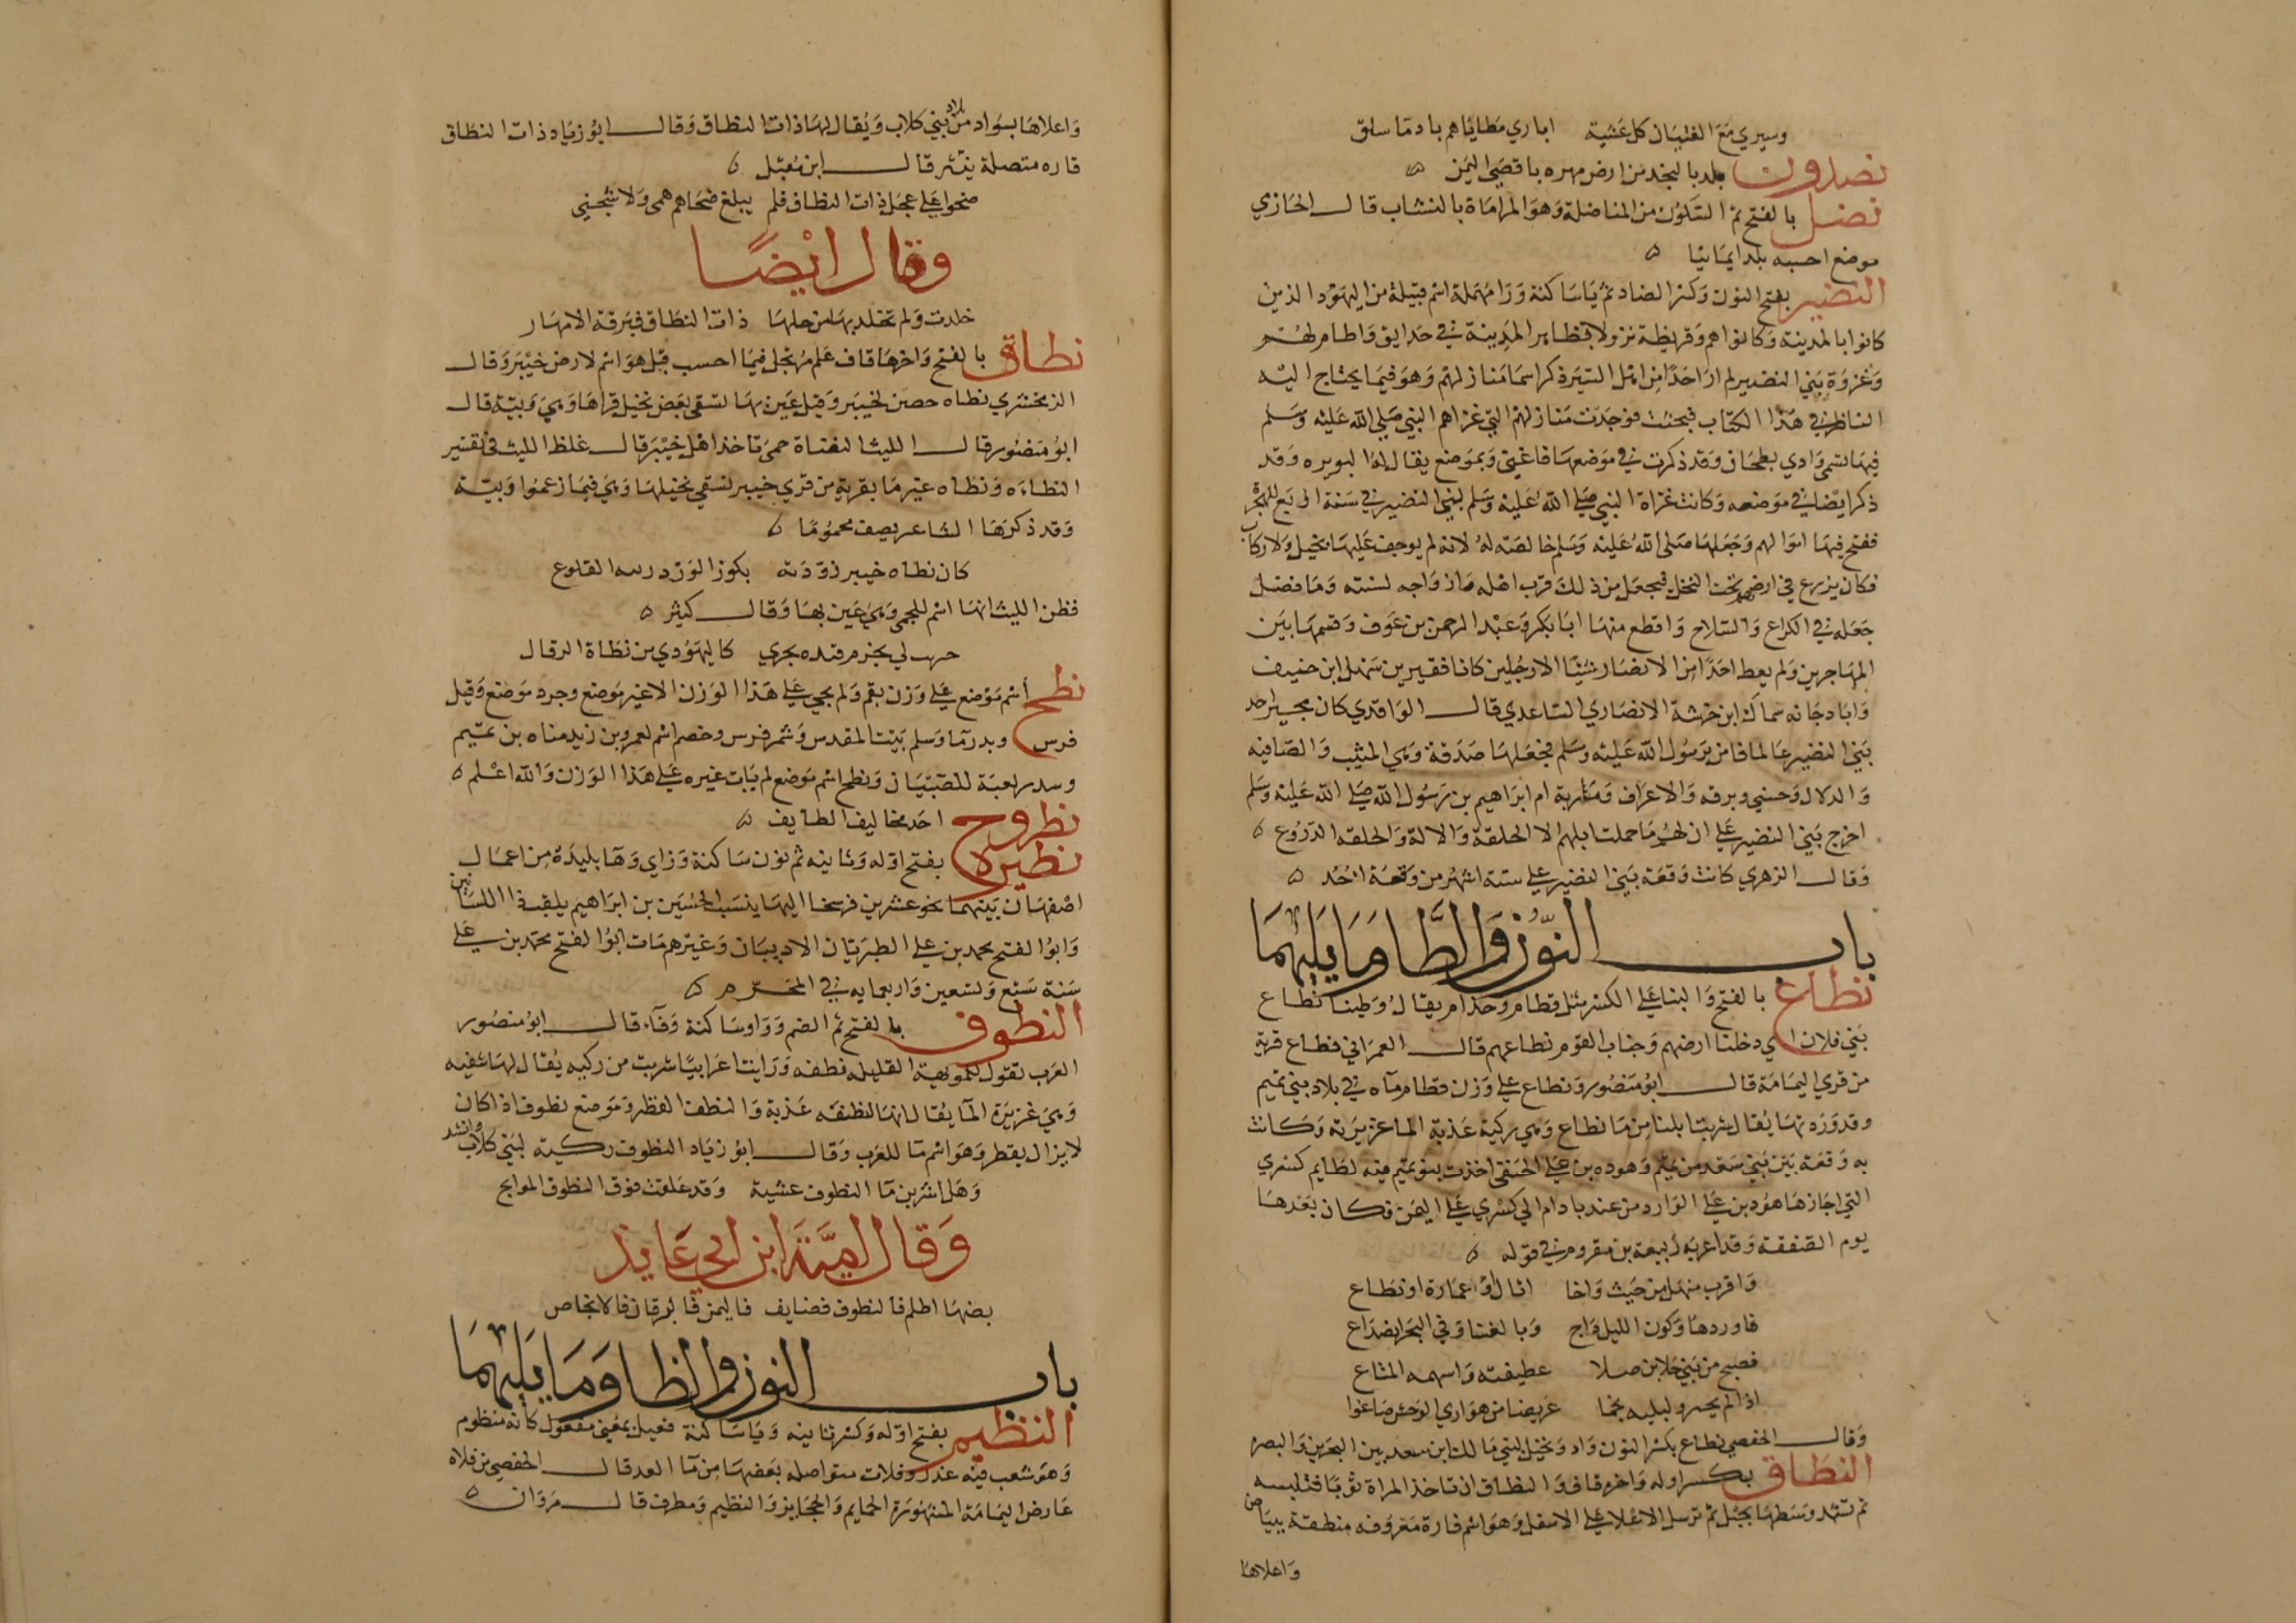 وسيري مع الفتيان كل عشية اباري مطاياهم بادما سلق
نضدون بلد بالنجد من ارض مهره باقصى اليمن ه
نضل بالفتح ثم السكون من المناضلة وهو المراماة بالنشاب قال الحازي
موضع احسبه بلدا يمانيا ه
النضير بفتح النون وكسر الضاد ثم يا ساكنة ورا مهملة اسم قبيلة من اليهود الذين
كانوا بالمدينة وكانوا هم وقريظة نزولا بظاهر المدينة في حدايق واطام لهم
وغزوة بني النضير لم ار احدا من اهل السير ذكر اسما منازلهم وهو فيما يحتاج اليه
الناظر في هذا الكتاب فبحثت فوجدت منازلهم التي غزاهم النبي صلى الله عليه وسلم
فيها تسمى وادي بطحان وقد ذكرت في موضعها فاغنى وبموضع يقال له البويره وقد
ذكر ايضا في موضعه وكانت غزاة النبي صلى الله عليه وسلم لبني النضير في سنة اربع للهجرة
ففتح فيها اموالهم وجعلها صلى الله عليه وسلم خالصة له لانه لم يوجف عليها بخيل ولا ركاب
فكان يزرع في ارضهم تحت النخل فيجعل من ذلك قوت اهله وازواجه لسنته وما فضل
جعله في الكراع والسلاح واقطع منها ابا بكر وعبد الرحمن بن عوف وقسمها بين
المهاجرين ولم يعط احدا من الانصار شيئا الا رجلين كانا فقيرين سهل ابن حنيف
وابا دجانه سماك ابن خرشة الانصاري الساعدي قال الواقدي كان مخيرق احد
بني النضير عالما فامن برسول الله عليه وسلم فجعلها صدقة وهي المثيب والصافيه
والدلال وحسني وبرقه والاعراف ومشربة ام ابراهيم بن رسول الله صلى الله عليه وسلم
اخرج بني النضير على ان لهم ما حملت ابلهم الا الحلقة والالة والحلقه الدروع ه
وقال الزهري كانت وقعة بني النضير على ستة اشهر من وقعة احد ه
باب النون والطا وما يليهما
نطاع بالفتح والبنا على الكسر مثل قطام وحذام يقال وطينا نطاع
بني فلان اي دخلنا ارضهم وجناب القوم نطاعهم قال العمراني نطاع قرية
من قرى اليمامة قال ابو منصور ونطاع على وزن قطام ماه في بلاد بني تميم
وقد وردتها يقال شربت ابلنا من ما نطاع وهي ركية عذبة الما غزيرته وكانت
به وقعة بين بني سعد من تميم وهوده بن علي الحنفي اخذت بنو تميم فيه لطايم كسرى
التي اجازها هود بن علي الوارد من عند بادام الى كسرى على اليمن فكان بعدها
يوم الصفقة وقد اعربه ربيعة بن مقروم في قوله ه
واقرب منهل من حيث واخا اثال او عمارة او نطاع
فاوردها وكون الليل داج وبا لغتا وفي البحر انصداع
فصبح من بني جلان صلا عطيفته واسهمه المتاع
اذا لم يحسر ولبنيه لحما غريضا من هوادي الوحش ضاعوا
وقال الحفصي نطاع بكسر النون واد ونخيل لبني مالك ابن سعد بين البحرين والبصره
النطاق بكسر اوله واخره قاف والنطاق ان تاخذ المراة ثوبا فتلبسه
ثم تشد وسطها بحبل ثم ترسل الاعلا على الاسفل وهو اسم قارة معروفه منطقة ببياض
واعلاها
واعلاها بسواد من بلاد بني كلاب ويقال لها ذات النطاق وقال ابو زياد ذات النطاق
قاره متصلة بنير قال ابن مقبل ه
ضحوا على عجل ذات النطاق فلم يبلغ ضحاهم همى ولا شجني
وقال ايضا
خلدت ولم تخلد بها من حلها ذات النطاق فبرقة الامهار
نطاق بالفتح واخرها قاف علم مرتجل فيما احسب قيل هو اسم لارض خيبر وقال
الزمخشري نطاه حصن لخيبر وقيل عين بها تسقى بعض نخيل قراها وهي وبية قال
ابو منصور قال الليث النطاة حمى تاخذ اهل خيبر قال غلط الليث في تفسير
النطاه ونطاه عين ما بقرية من قرى خيبر تسقي نخيلها وهي فيما زعموا وبية
وقد ذكرها الشاعر يصف محموما ه
كان نطاه خيبر زودته بكوز الورد ريثه القلوع
فظن الليث انها اسم للحمى وهي عين بها وقال كثير ه
حزيت لي بحزم فيده تحدي كاليهودي من نطاة الرقال
نطح اسم موضع على وزن بقم ولم يجي على هذا الوزن الا عثر موضع وجرد موضع وقيل
فرس وبدر ما وسلم بيت المقدس وشمر فرس وخصم اسم لعمرو بن زيد مناه بن تميم
وسدر لعبة للصبيان ونطح اسم موضع لم يات غيره على هذا الوزن والله اعلم ه
نطروح احد مخاليف الطايف ه
نطيزه بفتح اوله وثانيه ثم نون ساكنة وزاي وها بليدة من اعمال
اصفهان بينهما نحو عشرين فرسخا اليها ينسب الحسين بن ابراهيم يلقب ذا اللسانين
وابو الفتح محمد بن علي الطبريان الاديبان وغيرهم مات ابو الفتح محمد بن علي
سنة سبع وتسعين واربعمايه في المحرم ه
النطوف بالفتح ثم الضم وواو ساكنة وفاء قال ابو منصور
العرب تقول للمويهة القليله نطفه ورايت اعرابيا شرب من ركيه يقال لها شفيه
وهي غزيرة الما يقال انها لنطفه عذبة والنطف القطر وموضع نطوف اذا كان
لا يزال يقطر وهو اسم ما للعرب وقال ابو زياد النطوف ركية لبني كلاب وانشد
وهل اشربن ما النطوف عشية وقد علقت فوق النطوف الموايح
وقال امية ابن ابي عايذ
بضها اظلم فالنطوف فضايف فالنمر فالبرقان فالانحاص
باب النون والظا وما يليهما
النظيم بفتح اوله وكسر ثانيه ويا ساكنة فعيل بمعنى مفعول كانه منظوم
وهو شعب فيه عذر وقلات متواصله بعضها من ما العد قال الحفصي من قلاه
عارض اليمامة المشهورة الحمايم والحجايز والنظيم ومطرف قال مروان ه